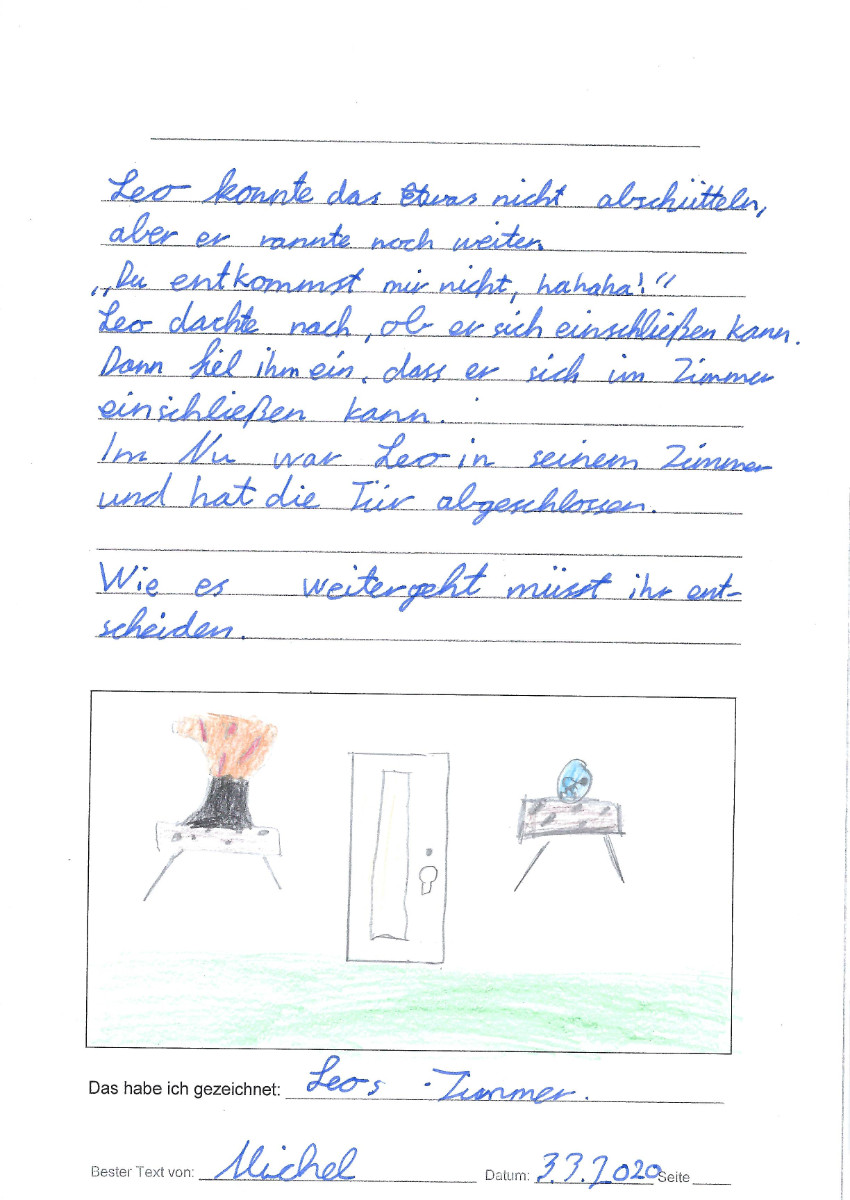 Leo konnte das Etwas nicht abschütteln,
aber er rannte noch weiter.
„Du entkommst mir nicht, hahaha!“
Leo dachte nach, ob er sich einschließen kann.
Dann fiel ihm ein, dass er sich im Zimmer
einschließen kann.
Im Nu war Leo in seinem Zimmer
und hat die Tür abgeschlossen.
Wie es weitergeht müsst ihr ent-
scheiden.
Das habe ich gezeichnet: Leos - Zimmer.
Bester Text von: Michel Datum: 3.3.2020 Seite